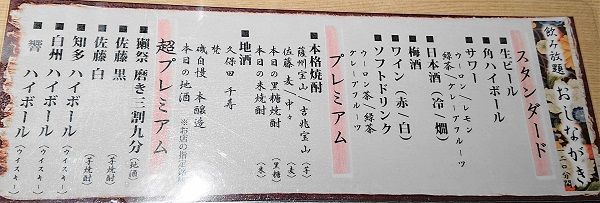 飲み放題 おしながき
二〇分間
スタンダード
■生ビール
■角ハイボール
■サワー
ウーロン/レモン
緑茶/グレープフルーツ
■日本酒（冷/燗）
■梅酒
■ワイン（赤/白）
■ソフトドリンク
ウーロン茶/緑茶
グレープフルーツ
プレミアム
■本格焼酎
薩州宝山/吉兆宝山（芋）
佐藤 麦/中々（麦）
本日の黒糖焼酎（黒糖）
本日の米焼酎（米）
■地酒
久保田 千寿
梵
磯自慢 本醸造
本日の地酒 ※お店の指定銘柄
超プレミアム
■獺祭 磨き三割九分（地酒）
■佐藤 黒（芋焼酎）
■佐藤 白（芋焼酎）
■知多 ハイボール（ウイスキー）
■白州 ハイボール（ウイスキー）
■響 ハイボール（ウイスキー）